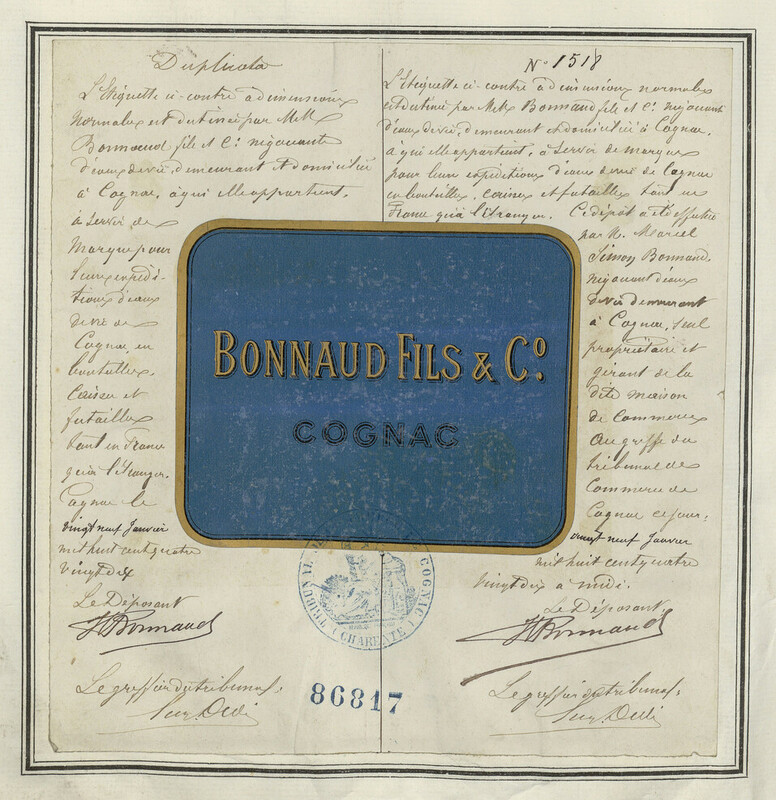 Duplicata
L'étiquette ci-contre a dimensions
normales est destinée par MM.
Bonnaud fils et Cie. négociants
d'eaux de vie, demeurant et domiciliés
à Cognac, à qui elle appartient,
à servir de
marque pour
leurs expédi-
tions d'eaux
de vie de
Cognac, en
bouteilles,
caisses et
futailles
tant en France
qu'à l'étranger.
Cognac le
vingt neuf Janvier
mil huit cent quatre
vingt dix
Le Déposant
Bonnaud
Le greffier du tribunal:
N° 1518
L'étiquette ci-contre a dimensions normales
est destinée par MM. Bonnaud fils et Cie. négociants
d'eaux de vie, demeurant et domiciliés à Cognac,
à qui elle appartient, à servir de marque
pour leurs expéditions d'eaux de vie de Cognac
en bouteilles, caisses et futailles tant en
France qu'à l'étranger. Ce dépôt a été effectué
par M. Marcel
Simon Bonnaud.
négociant d'eaux
de vie demeurant
à Cognac, seul
propriétaire et
gérant de la
dite maison
de Commerce
au greffe du
tribunal de
Commerce de
Cognac ce jour:
vingt neuf Janvier
mil huit cent quatre
vingt dix à midi.
Le Déposant
Bonnaud
Le greffier du tribunal:
BONNAUD FILS & Co.
COGNAC
TRIBUNAL
COGNAC
(CHARENTE)
86817